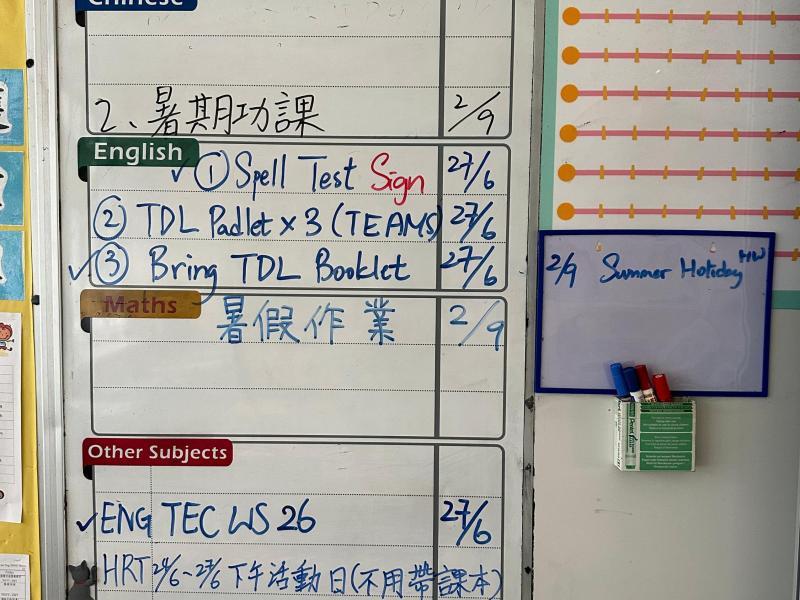 Chinese
2、暑期功課 2/9
English
✓ ① Spell Test Sign 27/6
② TDL Padlet x 3 (TEAMS) 27/6
✓ ③ Bring TDL Booklet 27/6
Maths
暑假作業 2/9
Other Subjects
✓ ENG TEC WS 26 27/6
HRT 24/6~27/6 下午活動日(不用帶課本)
2/9 Summer Holiday HW